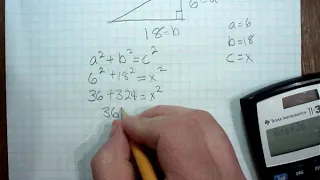 18=b
a=6
b=18
c=x
a²+b²=c²
6²+18²=x²
36+324=x²
36
TEXAS INSTRUMENTS